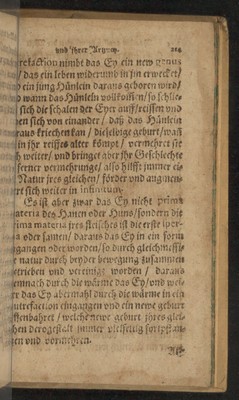 und ihrer Artzney. 214
refaction nimbt das Ey ein new genus
/ das ein leben widerumb in jm erwecket/
ein jung Hünlein daraus geboren wird/
wann das Hünlein vollkomen/ so schlie-
sich die schalen der Eyer auff/reissen und
en sich von einander/ daß das Hünlein
raus kriechen kan/ dieselbige geburt/wañ
in jhr reiffes alter kömpt/ vermehret sie
ch weiter/ und bringet aber jhr Geschlechte
ferner vermehrunge/ also hilfft jmmer ei-
Natur jres gleichen/ förder und augmen-
rt sich weiter in infinitum.
Es ist aber zwar das Ey nicht prima
ateria des Hanen oder Huns/ sondern die
rima materia jres fleisches ist die erste sper-
a oder samen/ daraus das Ey in ein form
gangen oder worden/ so durch gleichmessi-
natur durch beyder bewegung zusammen
etrieben und vereinigt worden/ daraus
ernnach durch die wärme das Ey/ und wei-
r das Ey abermahl durch die wärme in ein
utrefaction eingangen und ein newe geburt
ffenbahret/ welche newe geburt jhres glei-
hen derogestalt jmmer vielfeltig fortpflan-
en und vormehren.